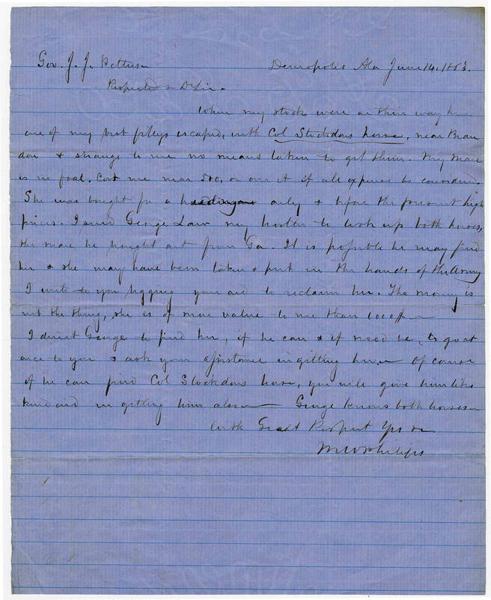 Gov. J. J. Pettus Demopolis Ala June 14, 1863.
Respected & D Sir.
When my stock were on their way here
one of my best fillys escaped, with Col Stockdons horse, near Bran
don & strange to me no means taken to get them. My mare
is in foal, cost me near $oo, or over it if all expenses be considered.
She was bought for a only & before the present high
prices. I send George Law my hostler to look up both horses,
the mare he bought out from Ga. It is possible he may find
her & she may have been taken & put in the hands of the Army
I write to you begging your aid to reclaim her. The money is
not the thing, she is of more value to me than 1000$
I direct George to find her, if he can & if need be, to go at
once to you & ask your assistance in getting her. Of course
if he can find Col Stockdons horse, you will give him like
kind aid in getting him also George knows both horses
With Great Respect Yrs &c
M W Philips